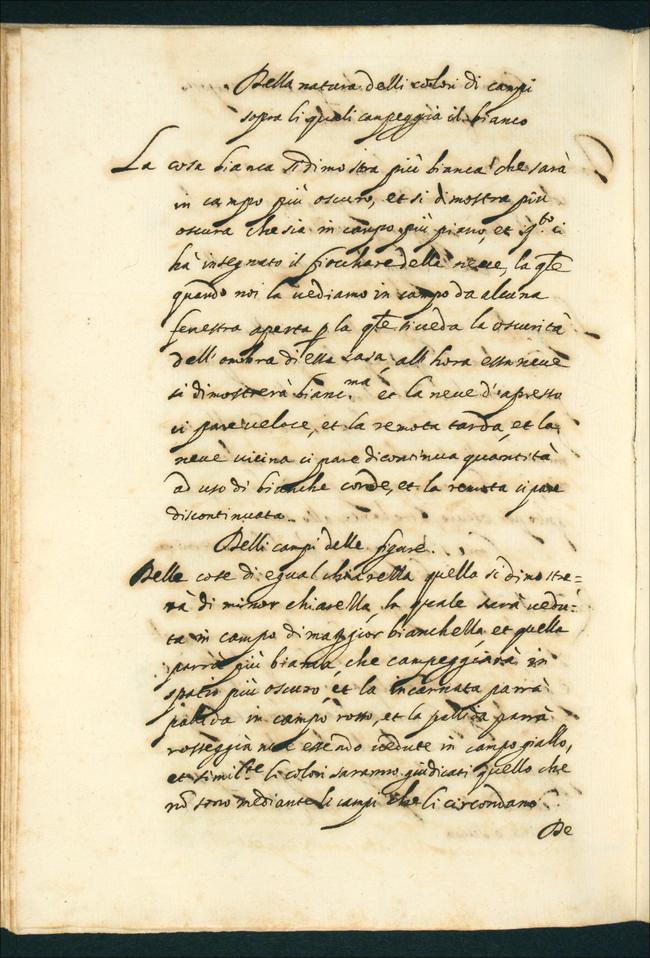 Della natura delli colori di campi
sopra li quali campeggia il bianco
La cosa bianca si dimostra più bianca che sarà
in campo più oscuro, et si dimostra più
oscura che sia in campo più piano, et q.to ci
hà insegnato il fiocchare della neve, la qle
quando noi la vediamo in campo da alcuna
fenestra aperta p la qle si veda la oscurità
dell' ombra di essa casa, all' hora essa neve
si dimostrerà bianc.ma et la neve d'apresso
ci pare veloce, et la remota tarda, et la
neve vicina ci pare di continua quantità
ad uso di bianche corde, et la remota ci pare
discontinuata.
Delli campi delle figure.
Delle cose di egual chiarella quella si dimostre=
rà di minor chiarella, la quale sarà vedu=
ta in campo di maggior bianchella, et quella
parrà più bianca, che campeggiarà in
spatio più oscuro, et la incarnata parrà
palida in campo rosso, et la pallida parrà
rosseggiante essendo vedute in campo giallo,
et simil.te li colori saranno giudicati quello che
nō sono mediante li campi che li circondano
De